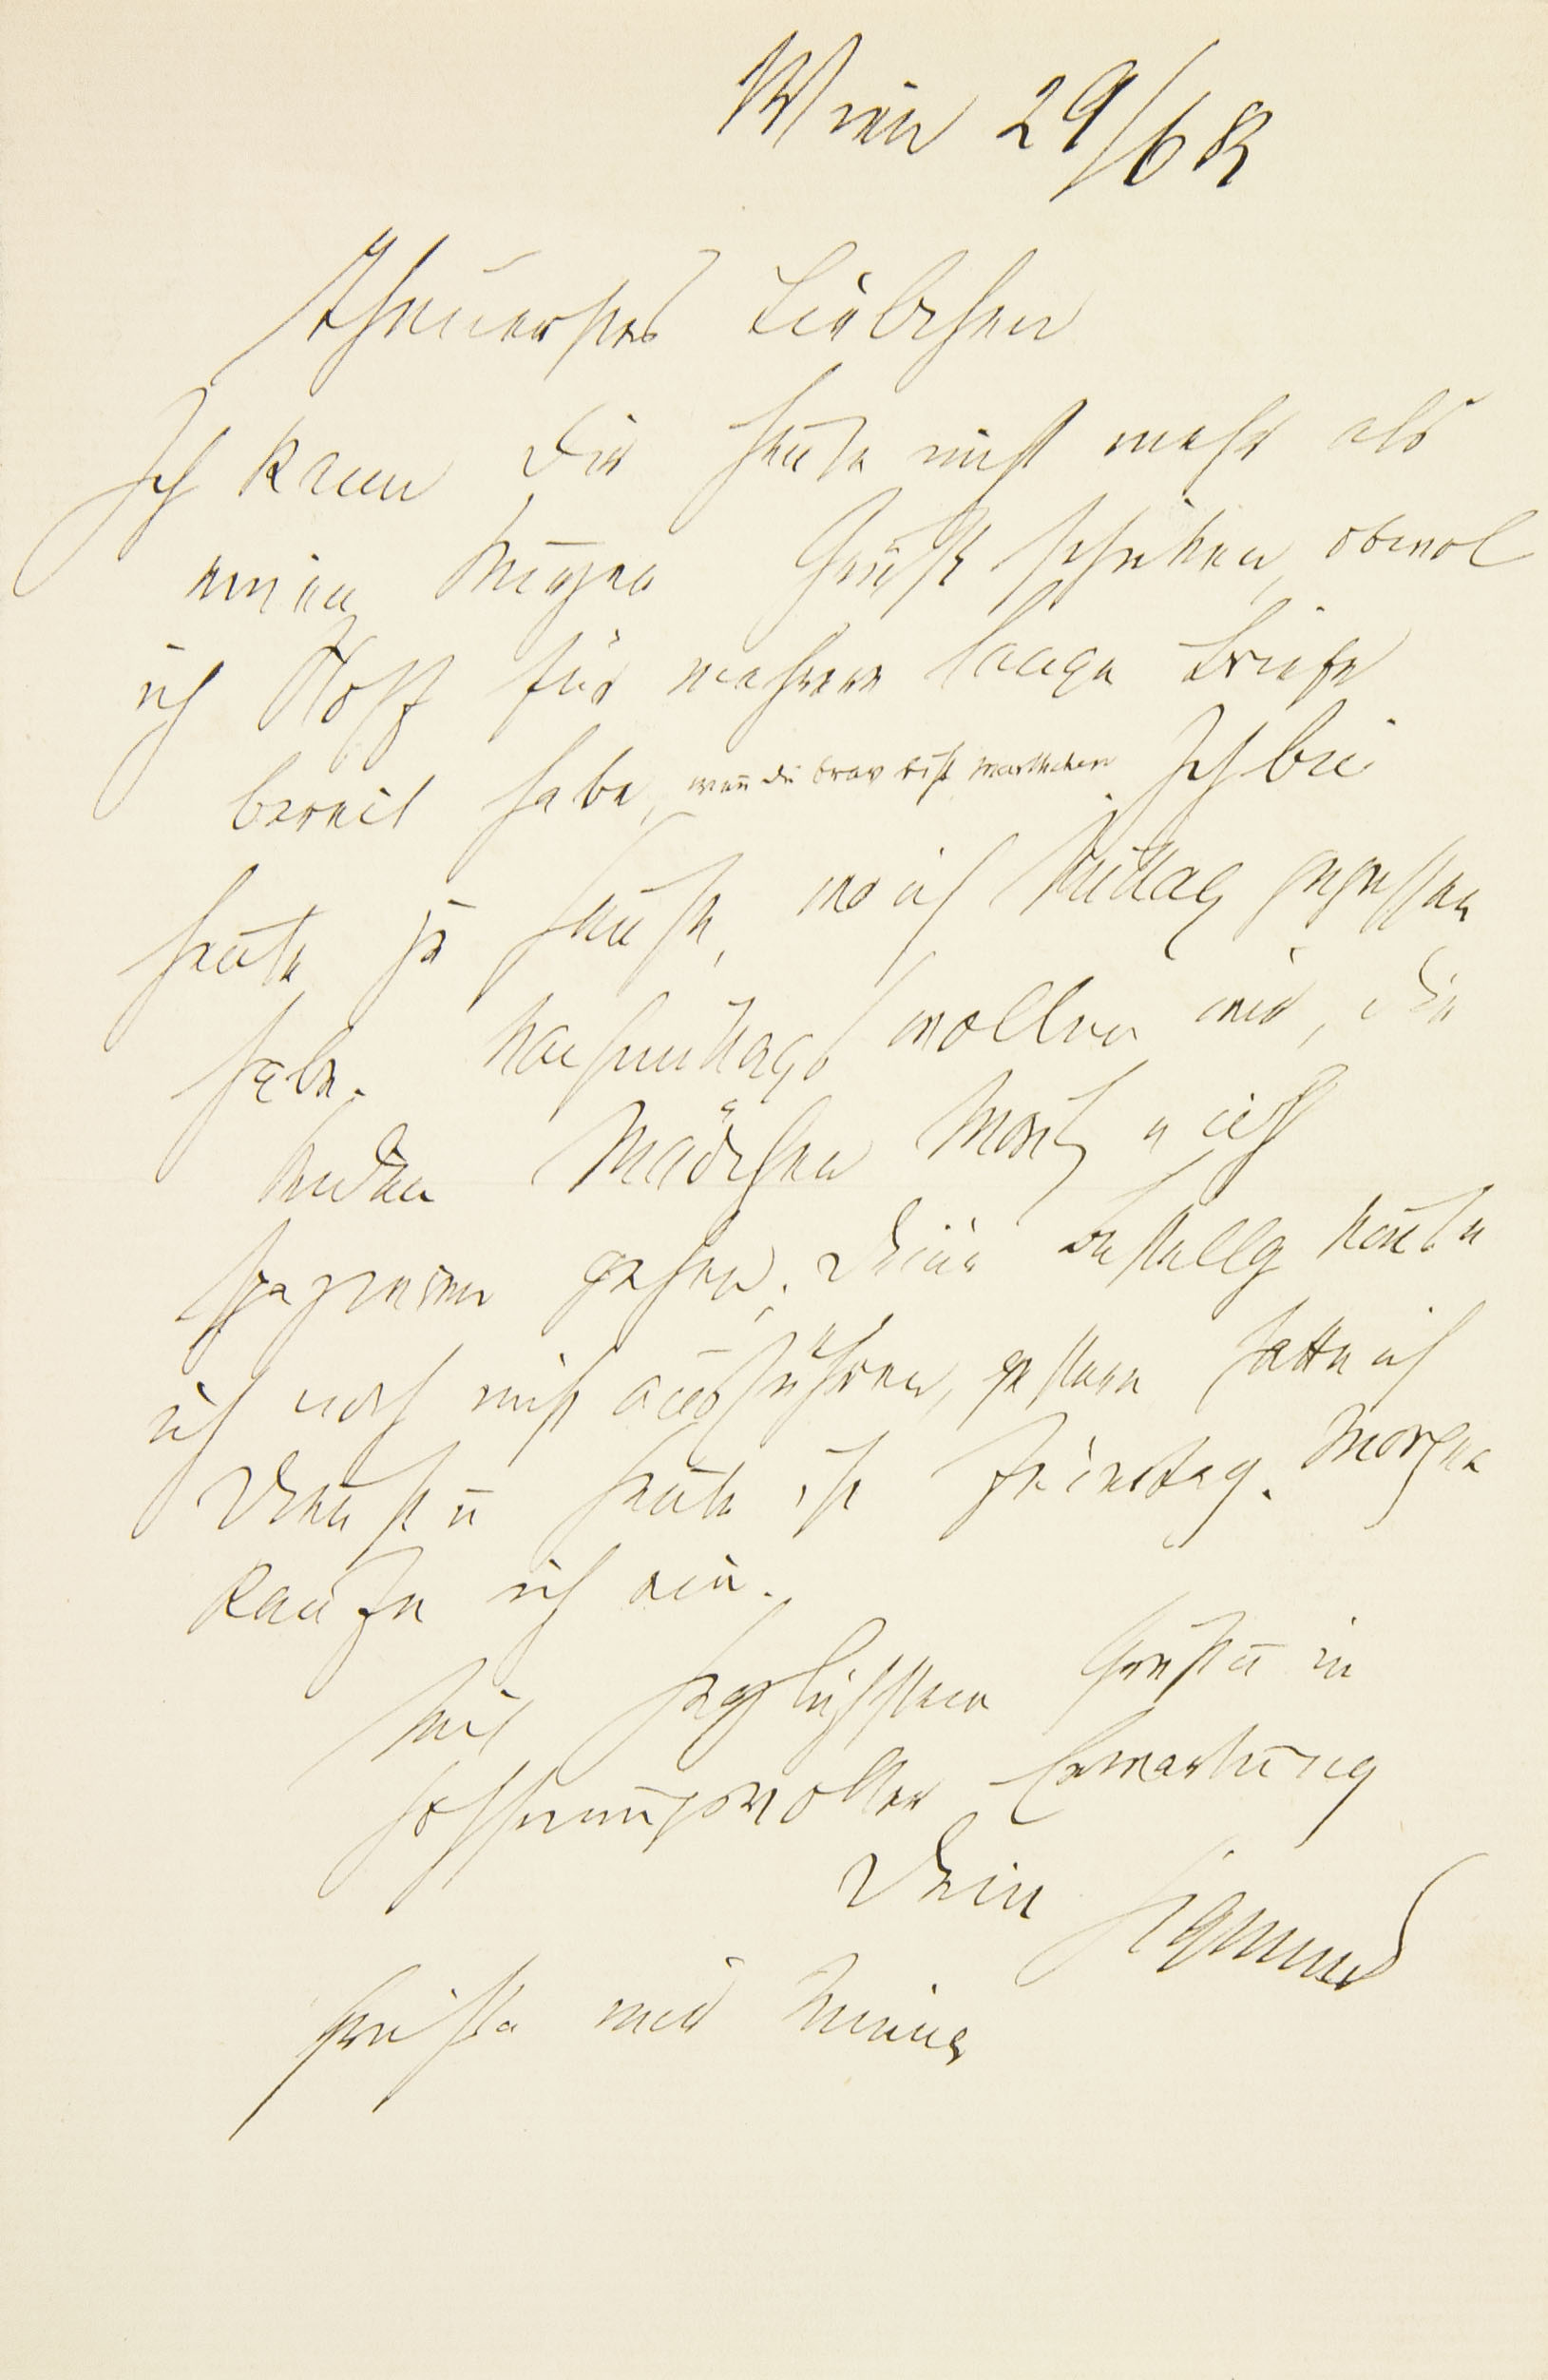 Wien 29/6 82
Theuerstes Liebchen
Ich kann Dir heute nicht mehr als
einen Gruß schicken, obwol
ich Stoff für mehrere lange Briefe
bereit habe, wenn du brav bist Marthchen. Ich bin
heute zu Hause, wo ich Mittag gegessen
habe. Nachmittags wollen wir, die
beiden Mädchen Moritz u ich
spazieren gehen. Deine Bestellg konnte
ich noch nicht ausführen, gestern hatte ich
Dienst u heute ist Feiertag. Morgen
kaufe ich ein.
Mit herzlichsten Grüßen in
hoffnungsvoller Erwartung
Dein Sigmund
Grüße mir Minna